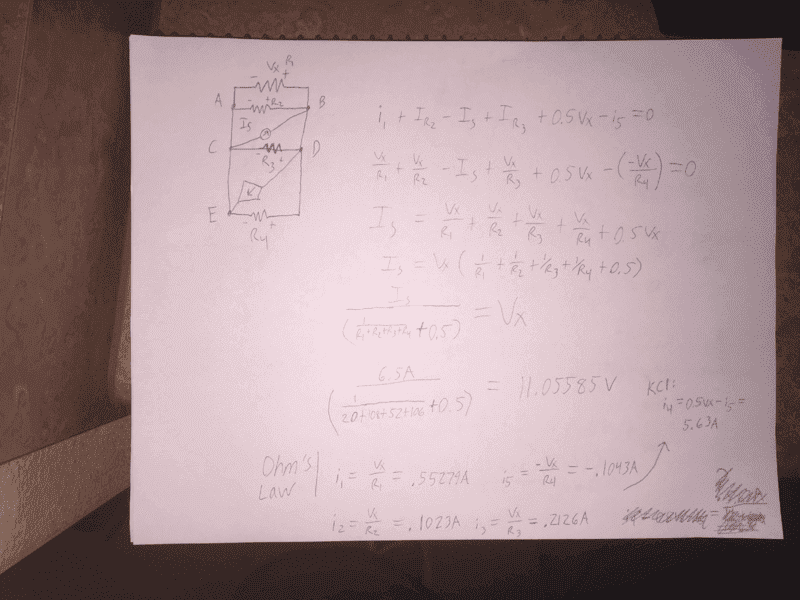 Vx R1
- +
A - + R2 B
Is
C - R3 + D
K
E - R4 +
i1 + IR2 - Is + IR3 + 0.5Vx - i5 = 0
Vx/R1 + Vx/R2 - Is + Vx/R3 + 0.5Vx - (-Vx/R4) = 0
Is = Vx/R1 + Vx/R2 + Vx/R3 + Vx/R4 + 0.5Vx
Is = Vx (1/R1 + 1/R2 + 1/R3 + 1/R4 + 0.5)
Is/(1/(R1+R2+R3+R4) + 0.5) = Vx
= 11.05585V
KCl:
i4 = 0.5Vx - i5 =
5.63A
Ohm's
Law
i1 = Vx/R1 = .55279A i5 = -Vx/R4 = -.1043A
i2 = Vx/R2 = .1023A i3 = Vx/R3 = .2126A